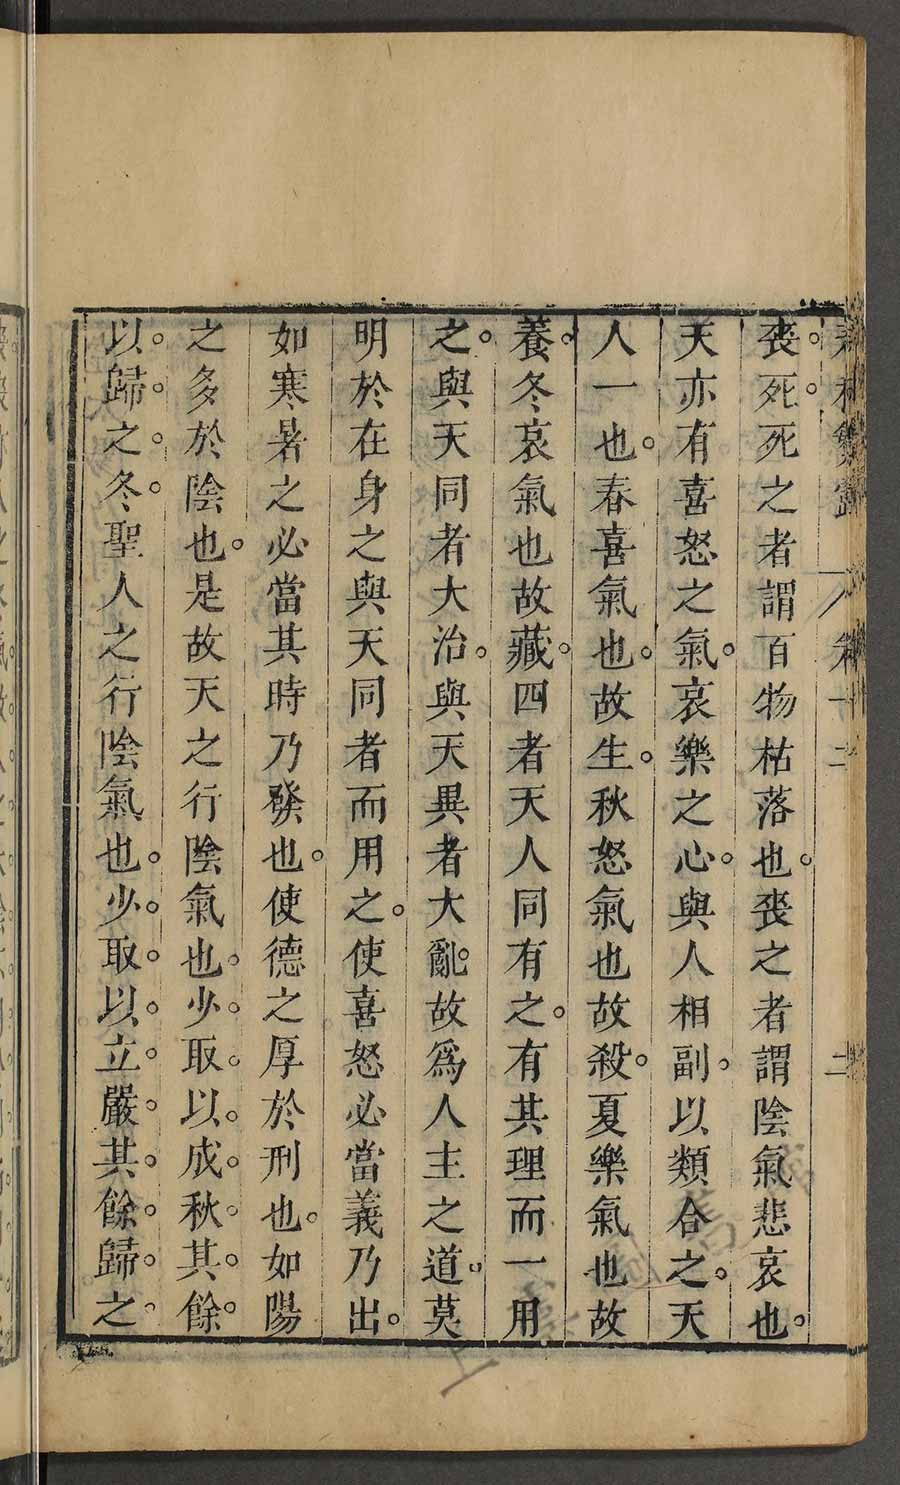 春秋繁露 卷十二 二
喪。死。死之者謂百物枯落也。喪之者謂陰氣悲哀也。
天亦有喜怒之氣。哀樂之心。與人相副。以類合之。天
人一也。春喜氣也。故生。秋怒氣也故殺。夏樂氣也故
養。冬哀氣也故藏。四者天人同有之。有其理而一用
之。與天同者大治。與天異者大亂。故爲人主之道。莫
明於在身之與天同者而用之。使喜怒必當義乃出。
如寒暑之必當其時乃發也。使德之厚於刑也。如陽
之多於陰也。是故天之行陰氣也。少。取。以。成。秋。其。餘。
以。歸。之。冬。聖人之行陰氣也。少。取。以。立。嚴。其。餘。歸。之。